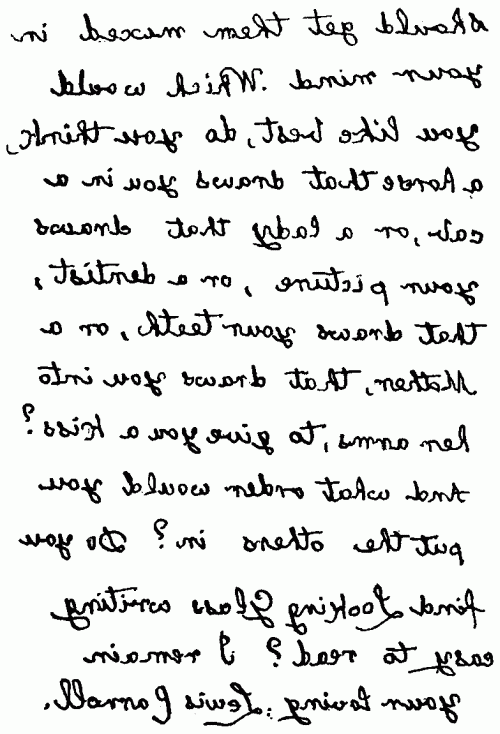 should get them mixed in
your mind. Which would
you like best, do you think,
a horse that draws you in a
cab, or a lady that draws
your picture, or a dentist,
that draws your teeth, or a
Mother, that draws you into
her arms, to give you a kiss?
And what order would you
put the others in? Do you
find Looking Glass writing
easy to read? I remain
your loving Lewis Carroll.